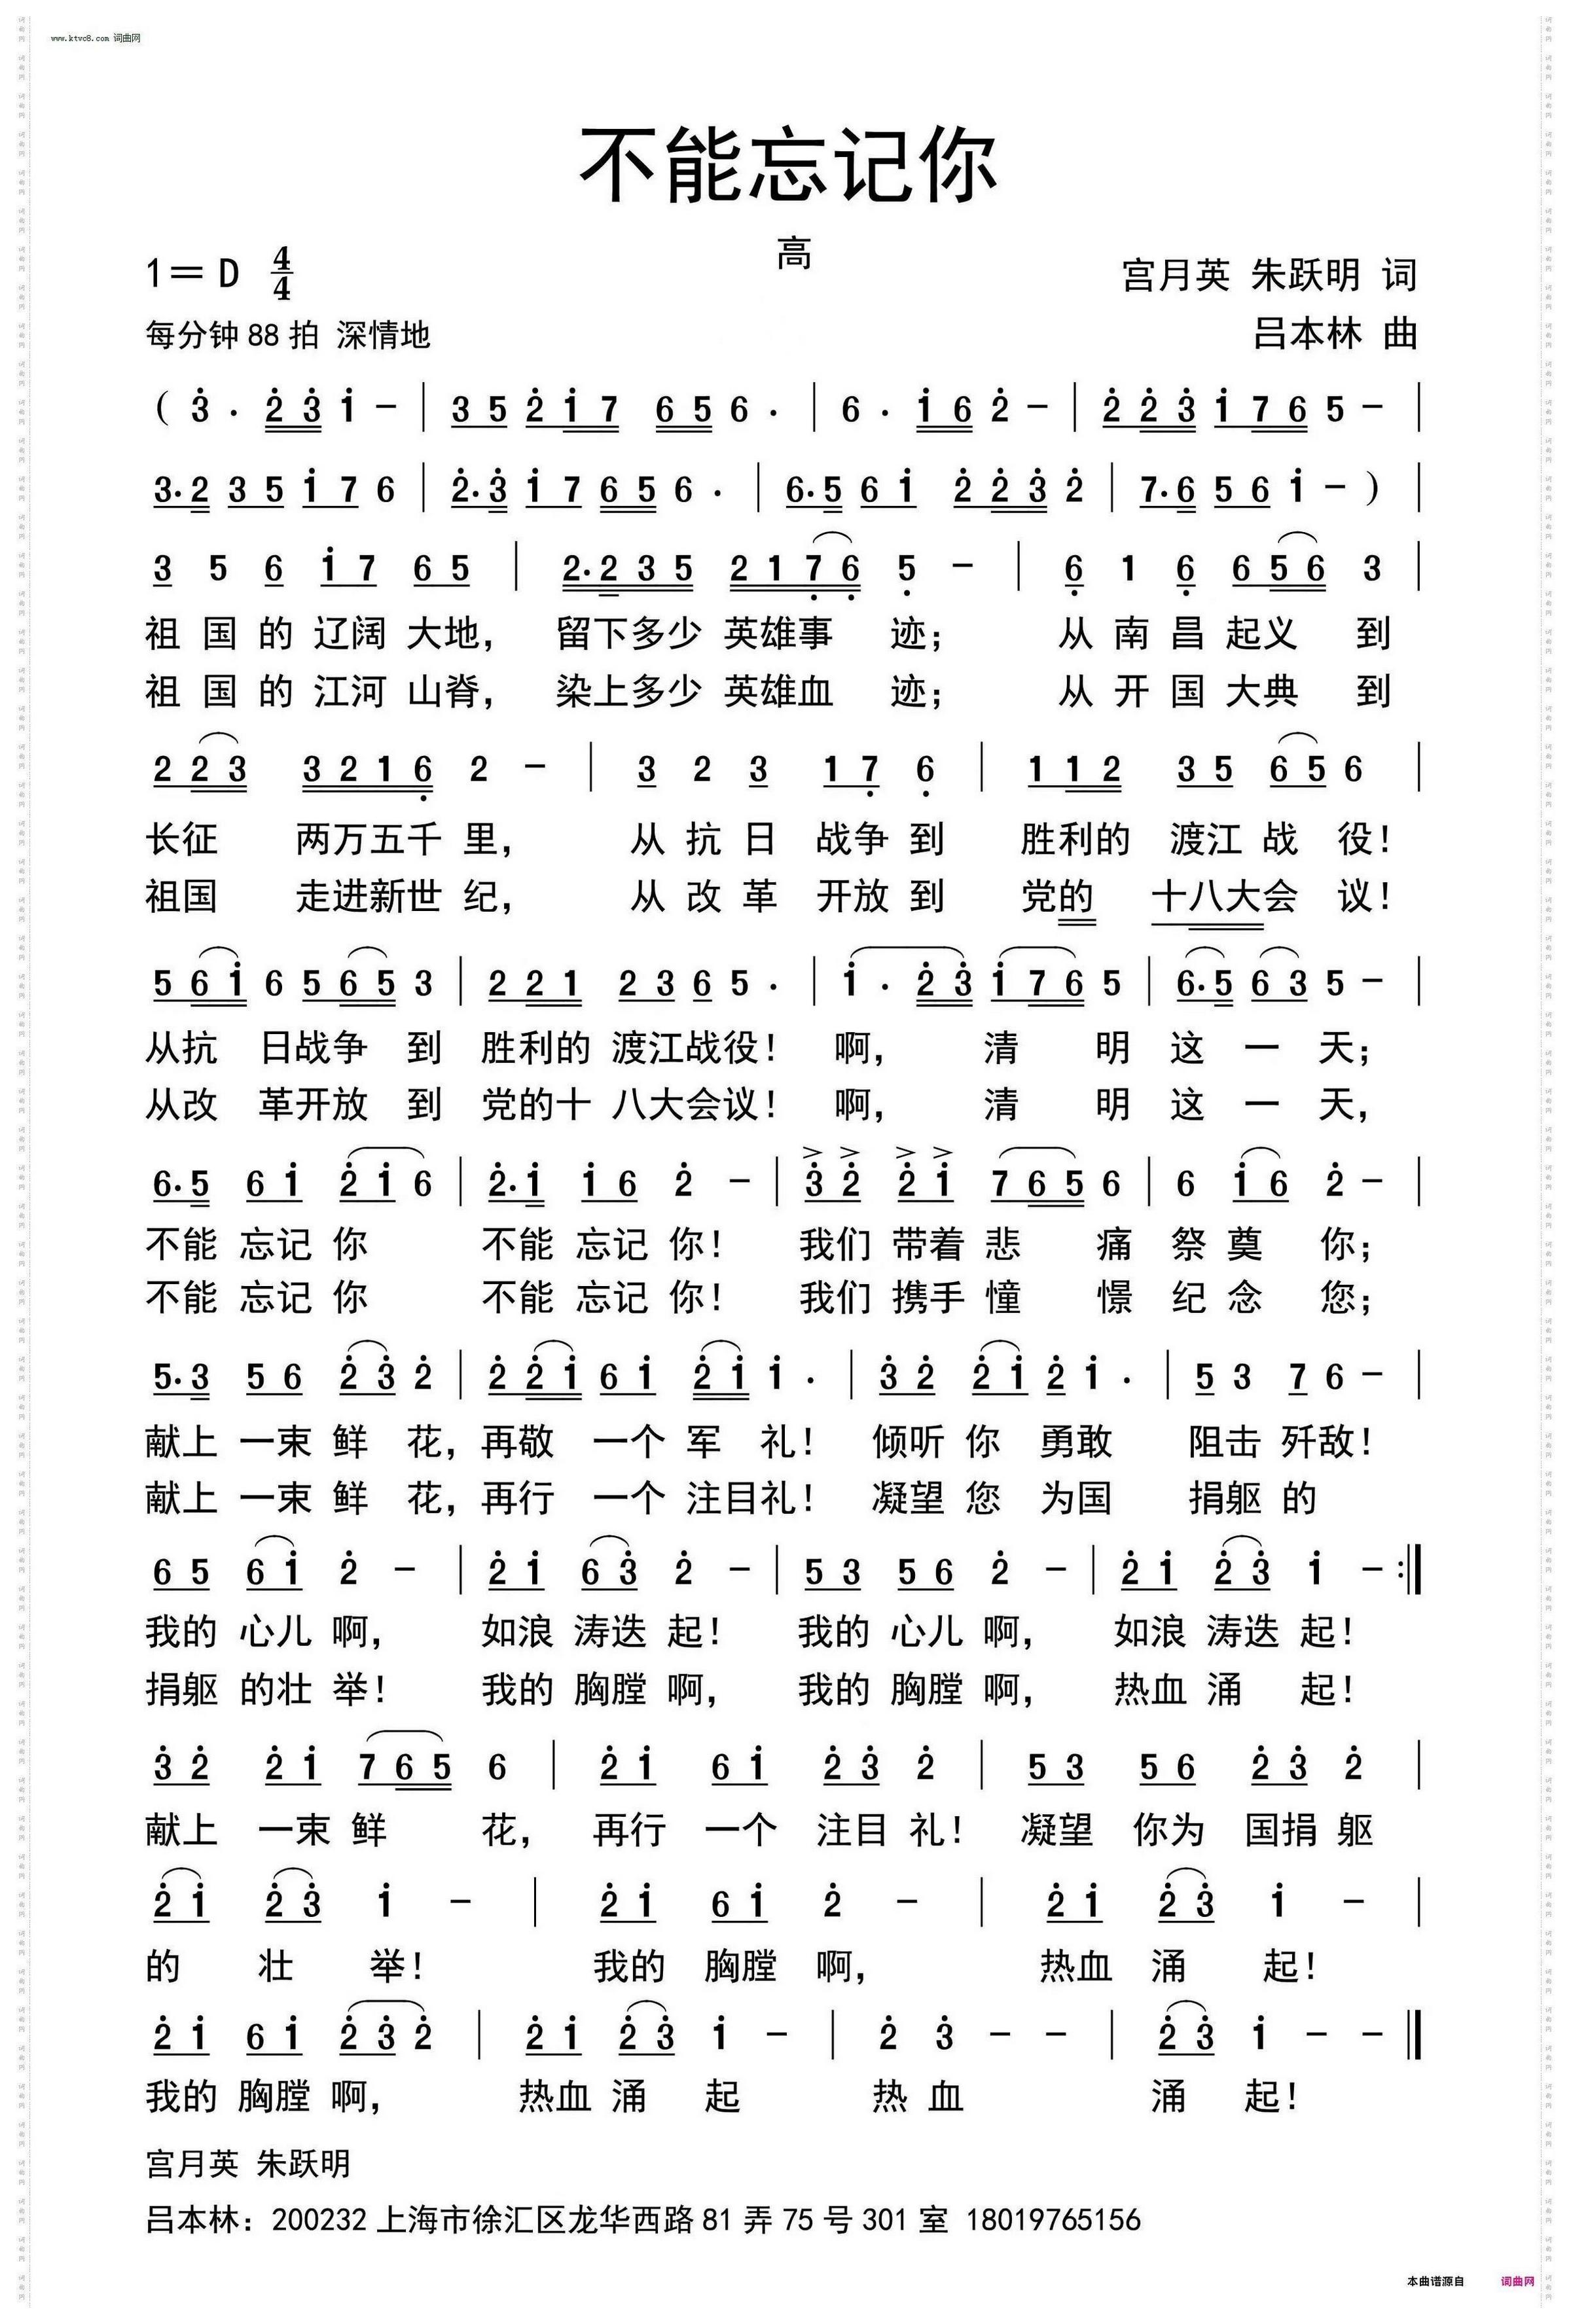 www.ktvc8.com 词曲网
不能忘记你
高
1= D 4/4
宫月英 朱跃明 词
每分钟 88 拍 深情地
吕本林 曲
( 3̇ . 2̇ 3̇ 1̇ - | 3 5 2̇ 1̇ 7 6 5 6 . | 6 . 1̇ 6 2̇ - | 2̇ 2̇ 3̇ 1̇ 7 6 5 - |
3. 2 3 5 1̇ 7 6 | 2̇. 3̇ 1̇ 7 6 5 6 . | 6. 5 6 1̇ 2̇ 2̇ 3̇ 2̇ | 7. 6 5 6 1̇ - ) |
3 5 6 1̇ 7 6 5 | 2. 2 3 5 2 1 7̣ 6̣ 5̣ - | 6̣ 1 6̣ 6 5 6 3 |
祖 国 的 辽阔 大地， 留下多少 英雄事 迹； 从 南 昌 起义 到
祖 国 的 江河 山脊， 染上多少 英雄血 迹； 从 开 国 大典 到
2 2 3 3 2 1 6̣ 2 - | 3 2 3 1 7̣ 6̣ | 1 1 2 3 5 6 5 6 |
长征 两万五千 里， 从 抗 日 战争 到 胜利的 渡江 战 役！
祖国 走进新世 纪， 从 改 革 开放 到 党的 十八大会 议！
5 6 1̇ 6 5 6 5 3 | 2 2 1 2 3 6 5 . | 1̇ . 2̇ 3̇ 1̇ 7 6 5 | 6. 5 6 3 5 - |
从抗 日战争 到 胜利的 渡江战役！ 啊， 清 明 这 一 天；
从改 革开放 到 党的十 八大会议！ 啊， 清 明 这 一 天，
6. 5 6 1̇ 2̇ 1̇ 6 | 2̇. 1̇ 1̇ 6 2̇ - | 3̇ 2̇ 2̇ 1̇ 7 6 5 6 | 6 1̇ 6 2̇ - |
不能 忘记 你 不能 忘记 你！ 我们 带着 悲 痛 祭 奠 你；
不能 忘记 你 不能 忘记 你！ 我们 携手 憧 憬 纪 念 您；
5. 3 5 6 2̇ 3̇ 2̇ | 2̇ 2̇ 1̇ 6 1̇ 2̇ 1̇ 1̇ . | 3̇ 2̇ 2̇ 1̇ 2̇ 1̇ . | 5 3 7 6 - |
献上 一束 鲜 花，再敬 一个 军 礼！ 倾听 你 勇敢 阻击 歼敌！
献上 一束 鲜 花，再行 一个 注目礼！ 凝望 您 为国 捐躯 的
6 5 6 1̇ 2̇ - | 2̇ 1̇ 6 3̇ 2̇ - | 5 3 5 6 2̇ - | 2̇ 1̇ 2̇ 3̇ 1̇ - :|
我的 心儿 啊， 如浪 涛迭 起！ 我的 心儿 啊， 如浪 涛迭 起！
捐躯 的壮 举！ 我的 胸膛 啊， 我的 胸膛 啊， 热血 涌 起！
3̇ 2̇ 2̇ 1̇ 7 6 5 6 | 2̇ 1̇ 6 1̇ 2̇ 3̇ 2̇ | 5 3 5 6 2̇ 3̇ 2̇ |
献上 一束 鲜 花， 再行 一个 注目 礼！ 凝望 你为 国捐 躯
2̇ 1̇ 2̇ 3̇ 1̇ - | 2̇ 1̇ 6 1̇ 2̇ - | 2̇ 1̇ 2̇ 3̇ 1̇ - |
的 壮 举！ 我的 胸膛 啊， 热血 涌 起！
2̇ 1̇ 6 1̇ 2̇ 3̇ 2̇ | 2̇ 1̇ 2̇ 3̇ 1̇ - | 2̇ 3̇ - - | 2̇ 3̇ 1̇ - - ||
我的 胸膛 啊， 热血 涌 起 热 血 涌 起！
宫月英 朱跃明
吕本林：200232 上海市徐汇区龙华西路 81 弄 75 号 301 室 18019765156
本曲谱源自 词曲网